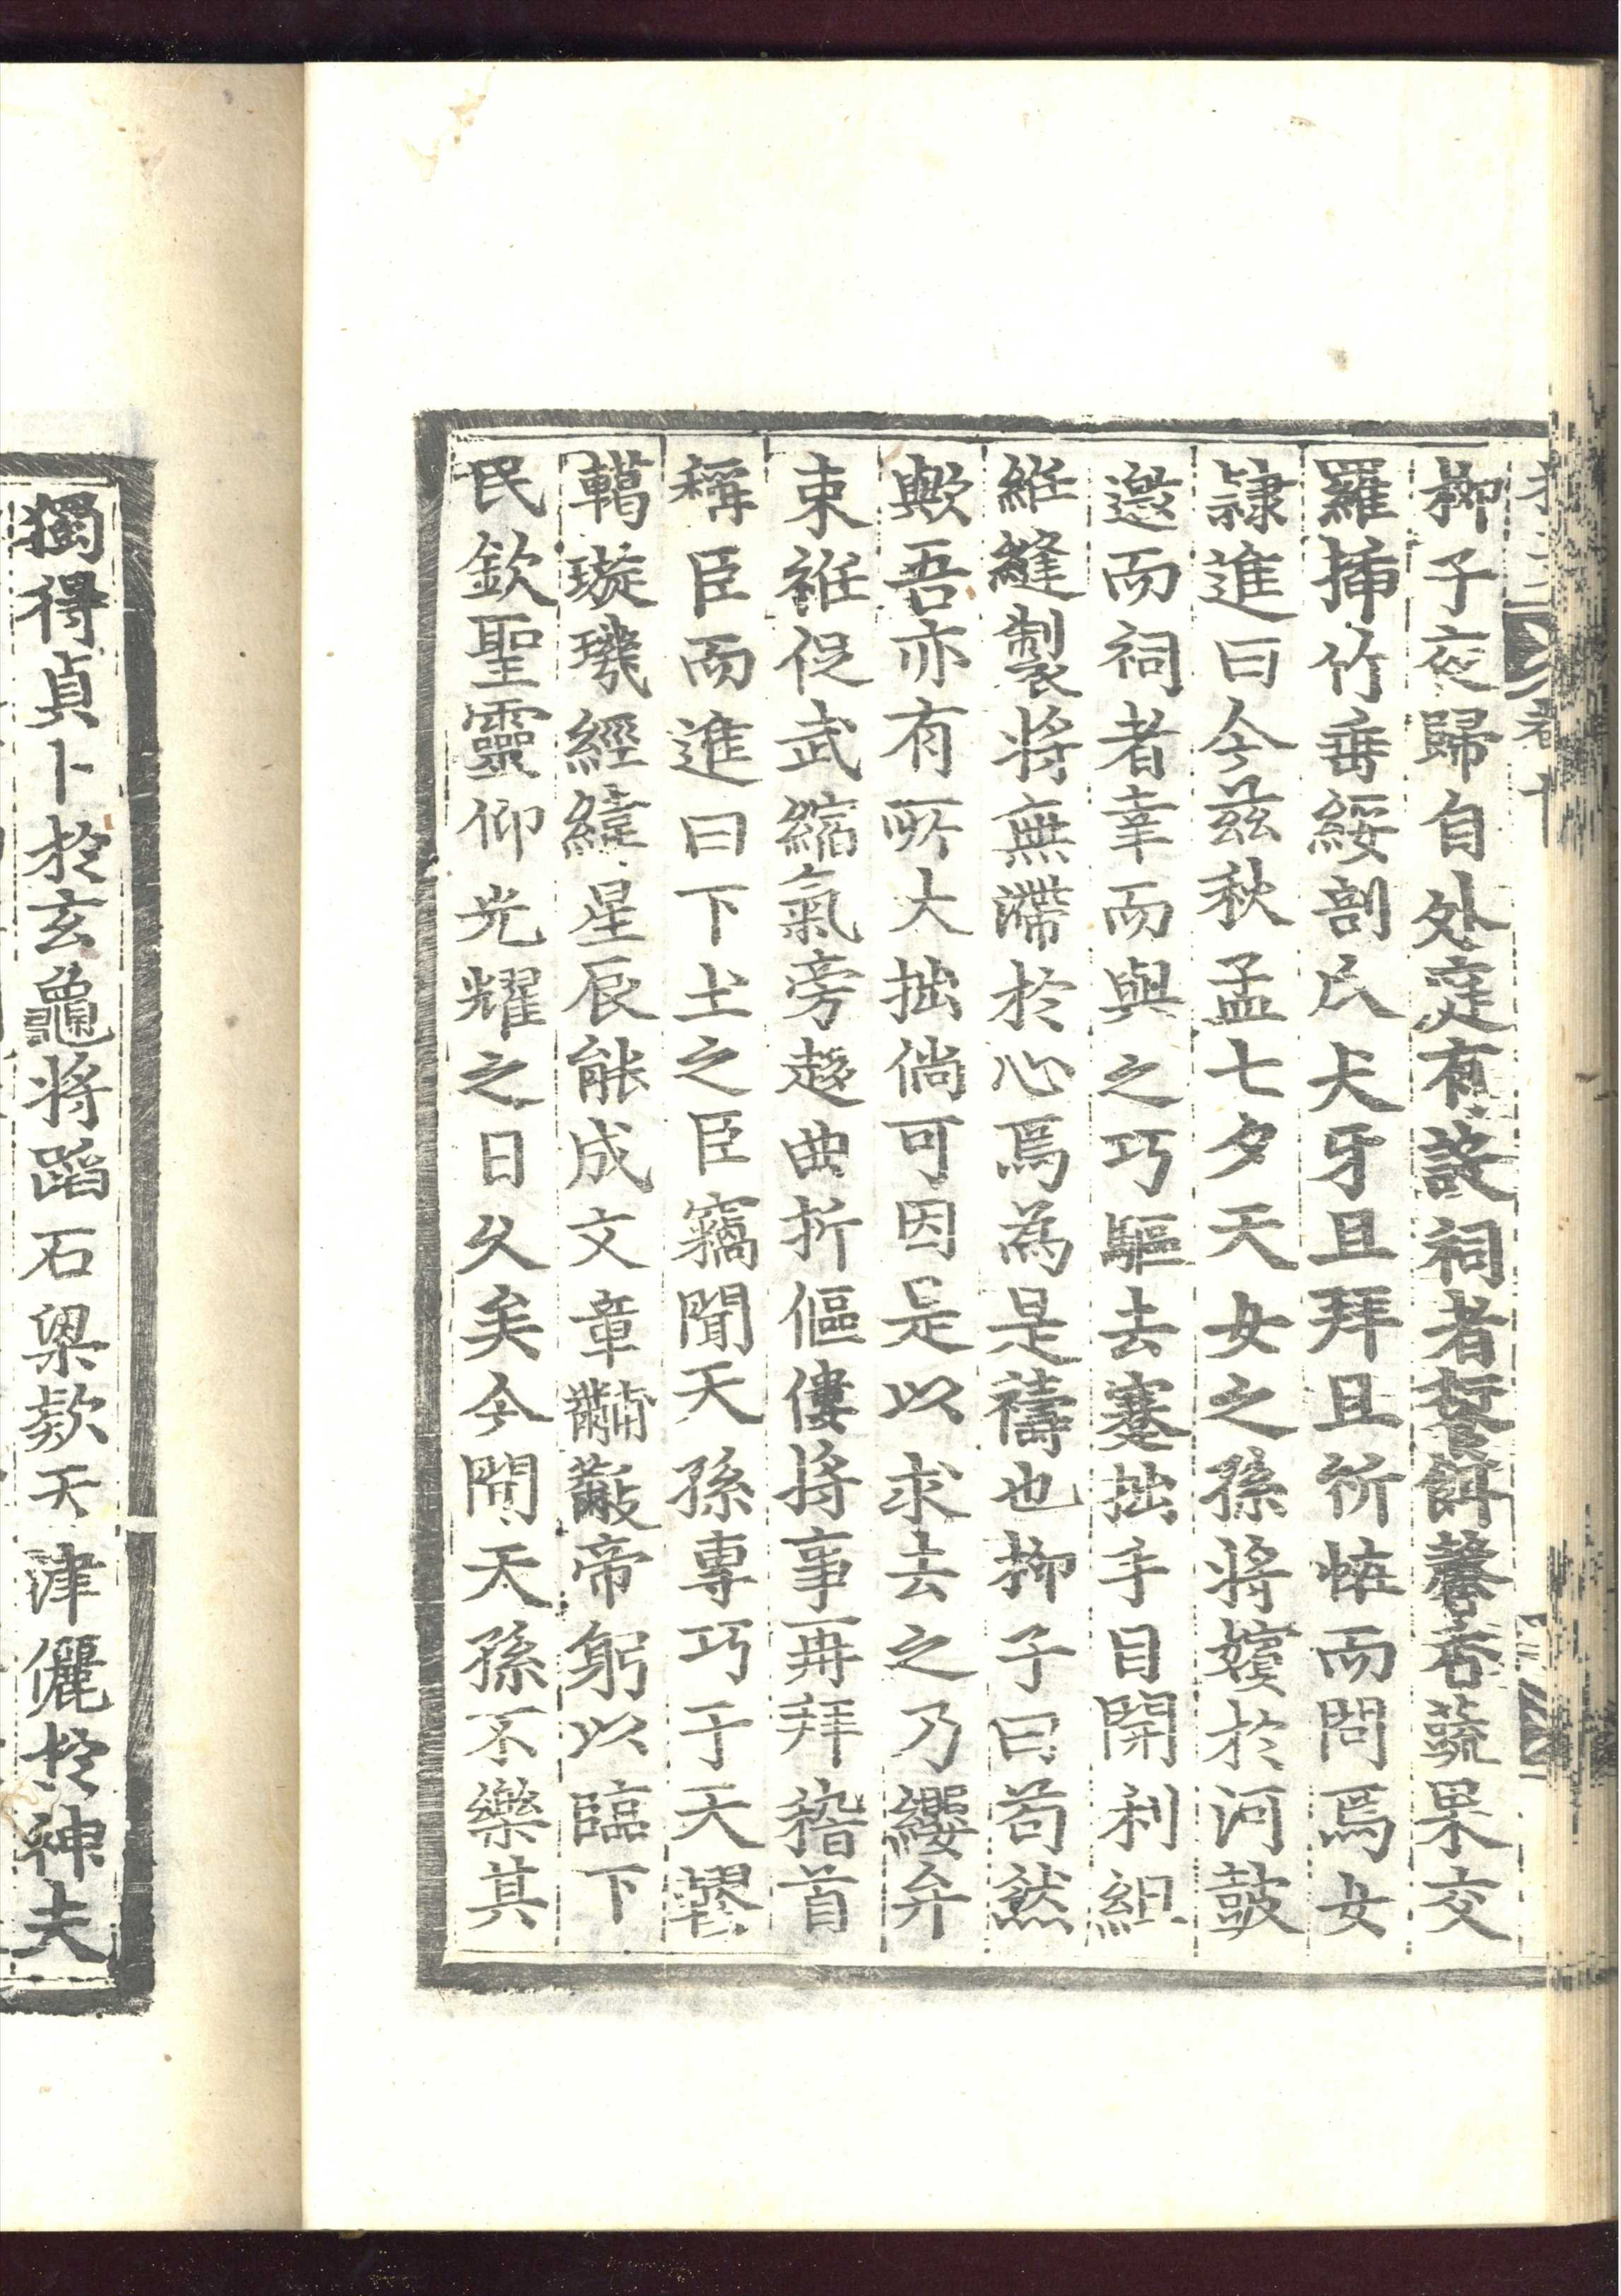 柳子夜歸自外庭有設祠者餐餌馨香蔬果交
羅揷竹垂綏剖瓜犬牙且拜且祈怪而問焉女
隷進曰今兹秋孟七夕天女之孫將嬪於河鼓
邀而祠者幸而與之巧驅去蹇拙手目開利組
絍縫製將無滯於心焉為是禱也柳子曰苟然
歟吾亦有所大拙倘可因是以求去之乃纓弁
束袵促武縮氣旁趍曲折傴僂將事再拜稽首
稱臣而進曰下土之臣竊聞天孫專巧于天轇
轕璇璣經緯星辰能成文章黼黻帝躬以臨下
民欽聖靈仰光耀之日久矣今聞天孫不樂其
獨得貞卜於玄龜將蹈石梁欵天津儷於神夫